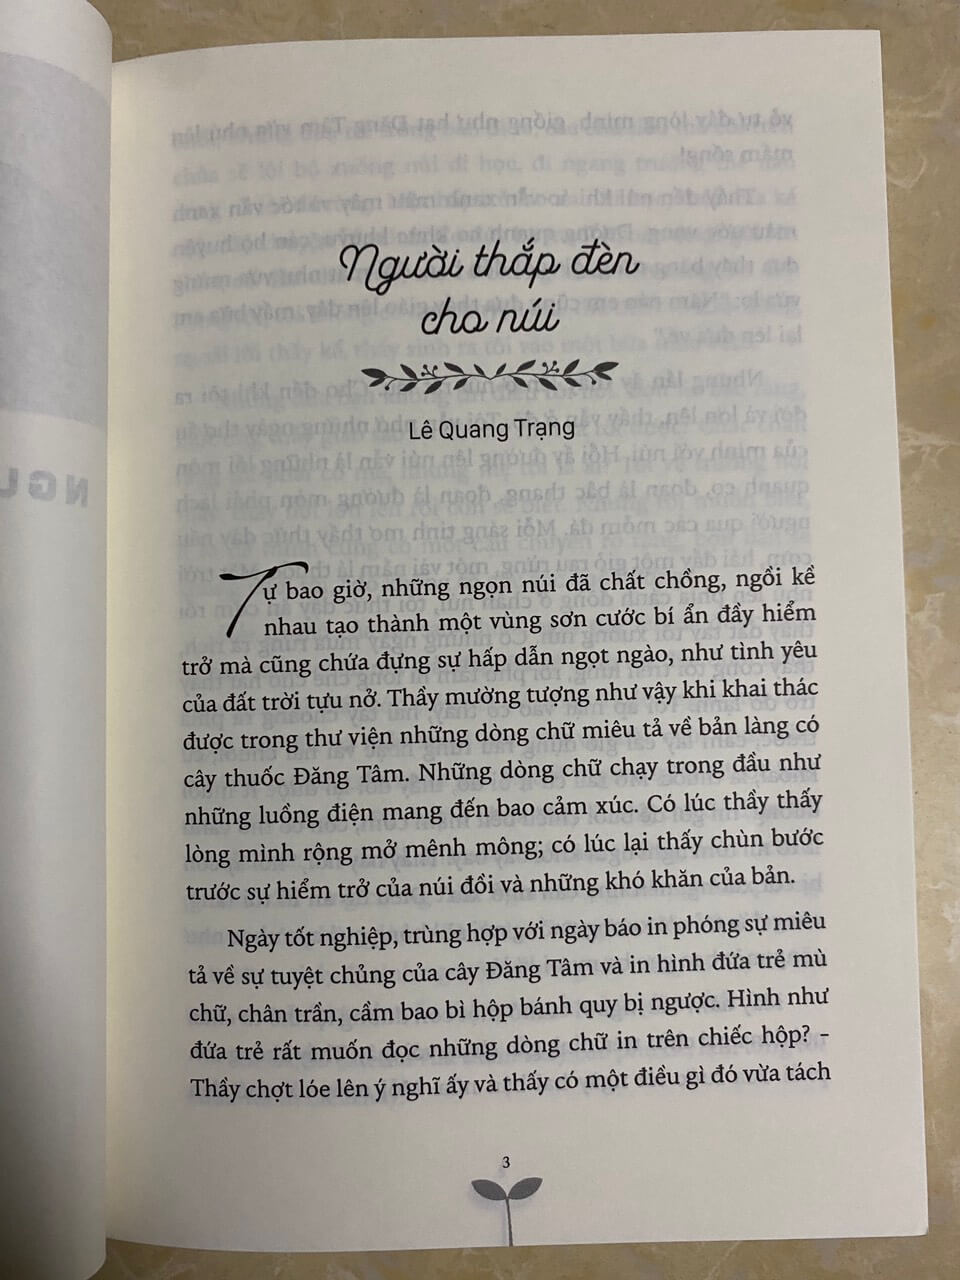 Người thắp đèn
cho núi
Lê Quang Trạng
Tự bao giờ, những ngọn núi đã chất chồng, ngồi kề
nhau tạo thành một vùng sơn cước bí ẩn đầy hiểm
trở mà cũng chứa đựng sự hấp dẫn ngọt ngào, như tình yêu
của đất trời tựu nở. Thầy mường tượng như vậy khi khai thác
được trong thư viện những dòng chữ miêu tả về bản làng có
cây thuốc Đăng Tâm. Những dòng chữ chạy trong đầu như
những luồng điện mang đến bao cảm xúc. Có lúc thầy thấy
lòng mình rộng mở mênh mông; có lúc lại thấy chùn bước
trước sự hiểm trở của núi đồi và những khó khăn của bản.
Ngày tốt nghiệp, trùng hợp với ngày báo in phóng sự miêu
tả về sự tuyệt chủng của cây Đăng Tâm và in hình đứa trẻ mù
chữ, chân trần, cầm bao bì hộp bánh quy bị ngược. Hình như
đứa trẻ rất muốn đọc những dòng chữ in trên chiếc hộp? -
Thầy chợt lóe lên ý nghĩ ấy và thấy có một điều gì đó vừa tách
3